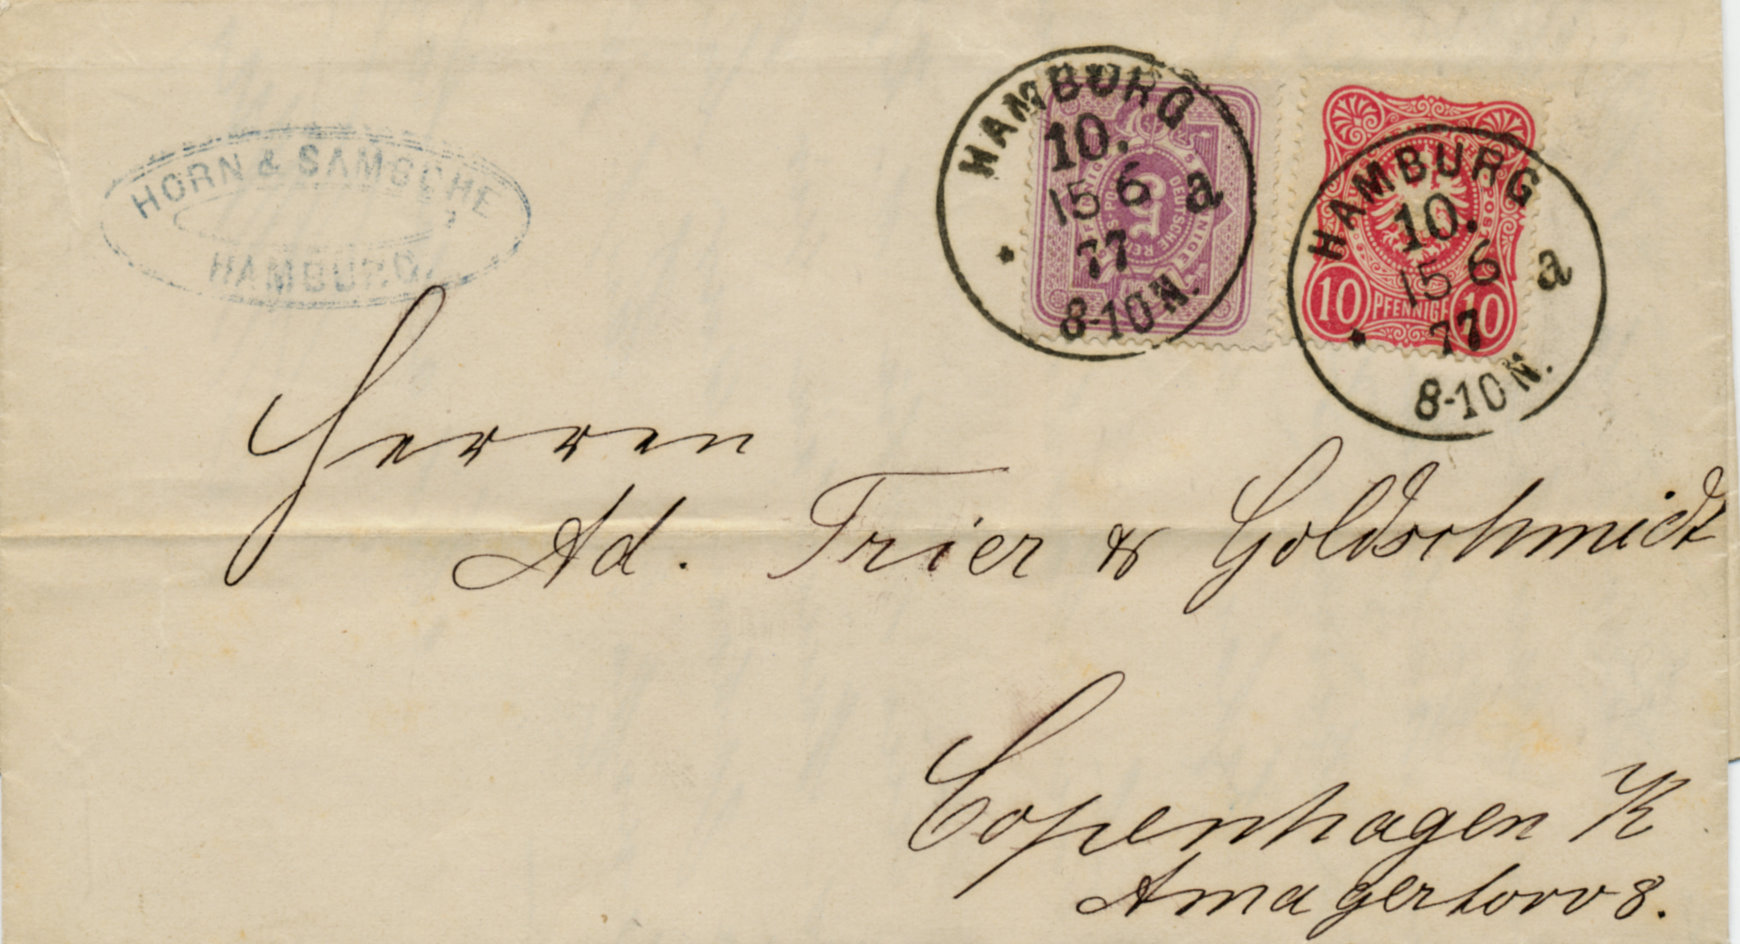 HORN & SAMSCHE
HAMBURG
HAMBURG
10.
15 6 a
77
8-10 N.
5
DEUTSCHE REICHS-POST
PFENNIGE
HAMBURG
10.
15 6 a
77
8-10 N.
10 PFENNIGE 10
Herren
Ad. Trier & Goldschmidt
Copenhagen K
Amagertorv 8.